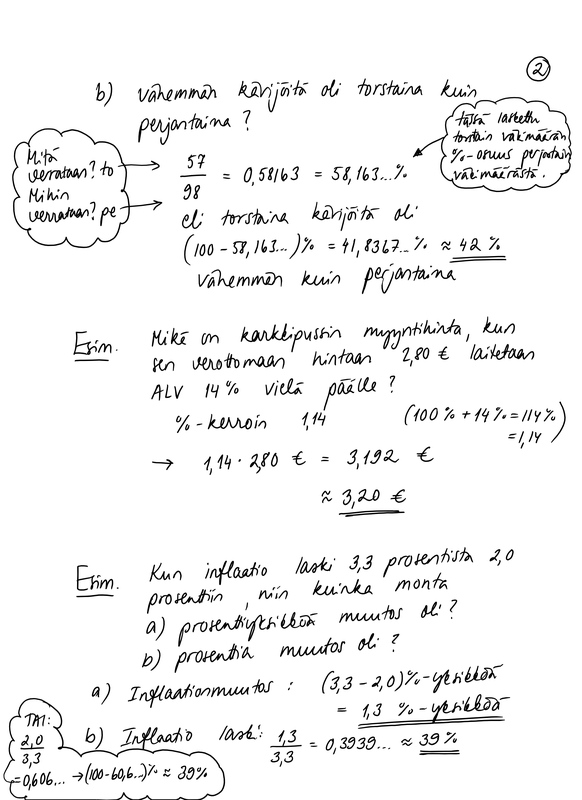 2
b) vähemmän kävijöitä oli torstaina kuin
perjantaina ?
tässä laskettu
torstain väkimäärän
%-osuus perjantain
väkimäärästä.
Mitä
verrataan? to
Mihin
verrataan? pe
57/98 = 0,58163 = 58,163...%
eli torstaina kävijöitä oli
(100 - 58,163...)% = 41,8367...% ≈ 42 %
vähemmän kuin perjantaina
Esim. Mikä on karkkipussin myyntihinta, kun
sen verottomaan hintaan 2,80 € laitetaan
ALV 14% vielä päälle ?
%-kerroin 1,14 (100 % + 14 % = 114 %
= 1,14)
→ 1,14 · 2,80 € = 3,192 €
≈ 3,20 €
Esim. Kun inflaatio laski 3,3 prosentista 2,0
prosenttiin, niin kuinka monta
a) prosenttiyksikköä muutos oli ?
b) prosenttia muutos oli ?
a) Inflaationmuutos : (3,3 - 2,0)%-yksikköä
= 1,3 %-yksikköä
b) Inflaatio laski: 1,3/3,3 = 0,3939... ≈ 39 %
TAI:
2,0/3,3
= 0,606... → (100-60,6...)% ≈ 39%